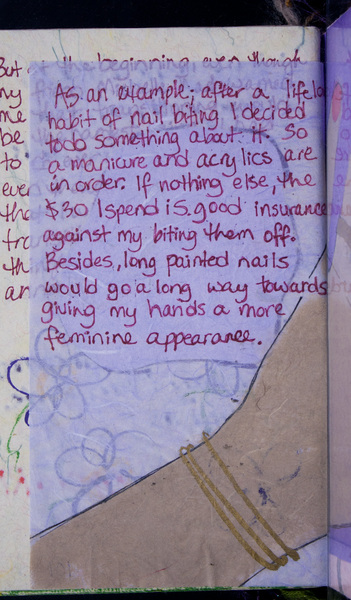 But the beginning even though
As an example, after a lifelo
habit of nail biting, I decided
todo something about it. So
a manicure and acrylics are
in order. If nothing else, the
$30 I spend is good insurance
against my biting them off.
Besides, long painted nails
would go a long way towards
giving my hands a more
feminine appearance.
my
me
be
to
even
tha
tra
thi
an